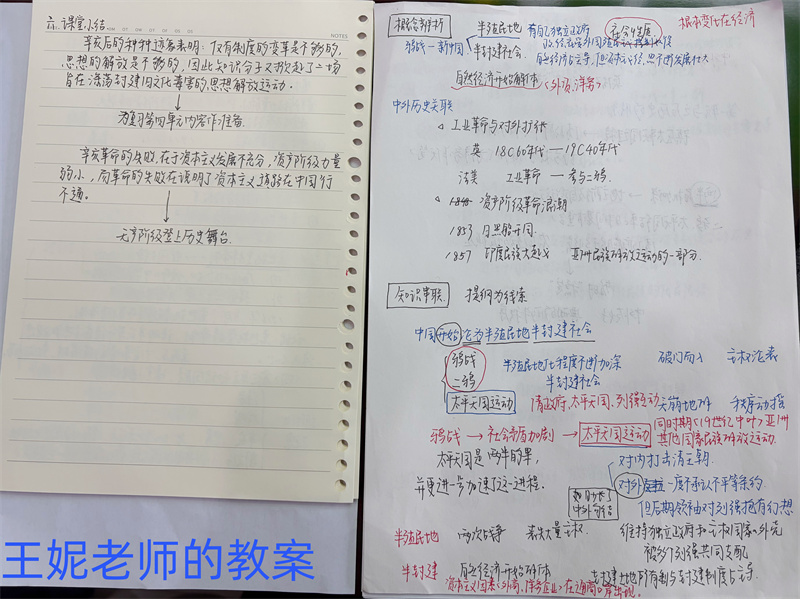 六.课堂小结
NOTES
辛亥后的种种迹象表明：仅有制度的变革是不够的，
思想的解放是不够的，因此知识分子又掀起了一场
旨在涤荡封建旧文化毒害的，思想解放运动．
为复习第四单元内容作准备．
辛亥革命的失败，在于资本主义发展不充分，资产阶级力量
弱小，而革命的失败在说明了资本主义道路在中国行
不通。
无产阶级登上历史舞台．
王妮老师的教案
概念辨析
半殖民地 有自己独立政府
社会性质
根本变化在经济
鸦战—新中国
半封建社会．
自然经济占主导，但
自然经济开始解体（外资，洋务）
中外历史关联
工业革命与对外扩张
英 18C60年代—19C40年代
法美 工业革命—参与二鸦．
1848 资产阶级革命浪潮
1853 日黑船开国．
1857 印度民族大起义 亚洲民族解放运动的一部分．
知识串联 提纲为线索
中国开始沦为半殖民地半封建社会
鸦战
二鸦
半殖民地化程度不断加深
半封建社会
破门而入 主权沦丧
太平天国运动 清政府、太平天国、列强互动 天崩地解 秩序动摇
鸦战→社会矛盾加剧→太平天国运动
同时期（19世纪中叶）亚洲
其他国家民族解放运动．
太平天国是两件的果，
并更进一步加速了这一进程．
对内打击清王朝．
中外勾结
对外 一度不承认不平等条约
但后期领袖对列强抱有幻想
半殖民地 两次战争 丧失大量主权 维持独立政府和主权国家外壳
被多个列强共同支配
半封建 自然经济开始解体 封建土地所有制与封建制度占主导．
资本主义因素（外商，洋务企业）在通商口岸出现．